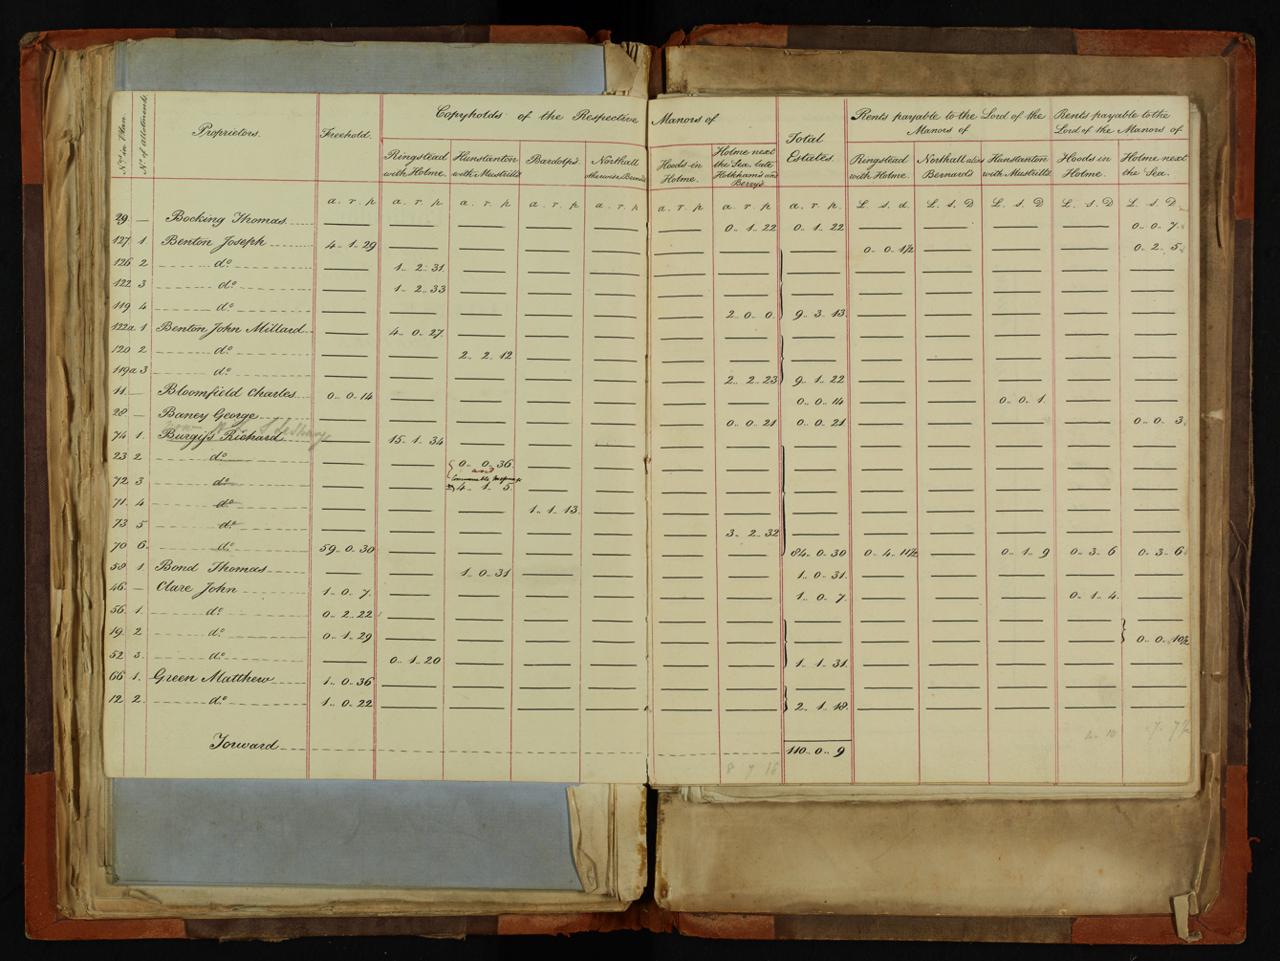 Nos. in Plan. No. of Allotments. Proprietors. Freehold. Copyholds of the Respective Manors of Total Estates. Rents payable to the Lord of the Manors of Rents payable to the Lord of the Manors of
Ringstead with Holme. Hunstanton with Mustrills Bardolph's Northall otherwise Hoods in Holme. Holme next the Sea, late Holkham's and Berry's Ringstead with Holme. Northall alias Bernard's Hunstanton with Mustrills Hoods in Holme. Holme next the Sea.
a. r. p a. r. p a. r. p a. r. p a. r. p a. r. p a. r. p a. r. p L. s. d. L. S. D L. S. D L. S. D L. S. D
29 — Bocking Thomas — — — — — — 0..1..22 0..1..22 — — — — 0..0..7
127 1 Benton Joseph 4..1..29 — — — — — — — 0..0..1½ — — — 0..2..5
126 2 do — 1..2..31 — — — — — — — — — —
122 3 do — 1..2..33 — — — — — — — — — —
119 4 do — — — — — — 2..0..0 9..3..13 — — — — —
122a 1 Benton John Millard — 4..0..27 — — — — — — — — — —
120 2 do — — 2..2..12 — — — — — — — — —
119a 3 do — — — — — — 2..2..23 9..1..22 — — — — —
11 — Bloomfield Charles 0..0..14 — — — — — — 0..0..14 — — 0..0..1 — —
28 — Baney George — — — — — — 0..0..21 0..0..21 — — — — 0..0..3
74 1. Burgess Richard — 15..1..34 — — — — — — — — — —
23 2 do — — 0..0..36 — — — — — — — — —
and
72 3 do — — 4..1..5 — — — — — — — — —
71 4 do — — — 1..1..13 — — — — — — — —
73 5 do — — — — — — 3..2..32 — — — — —
70 6. do 59..0..30 — — — — — — 84..0..30 0..4..11½ — 0..1..9 0..3..6 0..3..6
58 1. Bond Thomas — — 1..0..31 — — — — 1..0..31 — — — — —
46 — Clare John 1..0..7 — — — — — — 1..0..7 — — — 0..1..4 —
56 1. do 0..2..22 — — — — — — — — — —
19 2 do 0..1..29 — — — — — — — — — — 0..0..10½
52 3. do — 0..1..20 — — — — — 1..1..31 — — — —
66 1. Green Matthew 1..0..36 — — — — — — — — — — —
12 2 do 1..0..22 — — — — — — 2..1..18 — — — — —
Forward 110..0..9